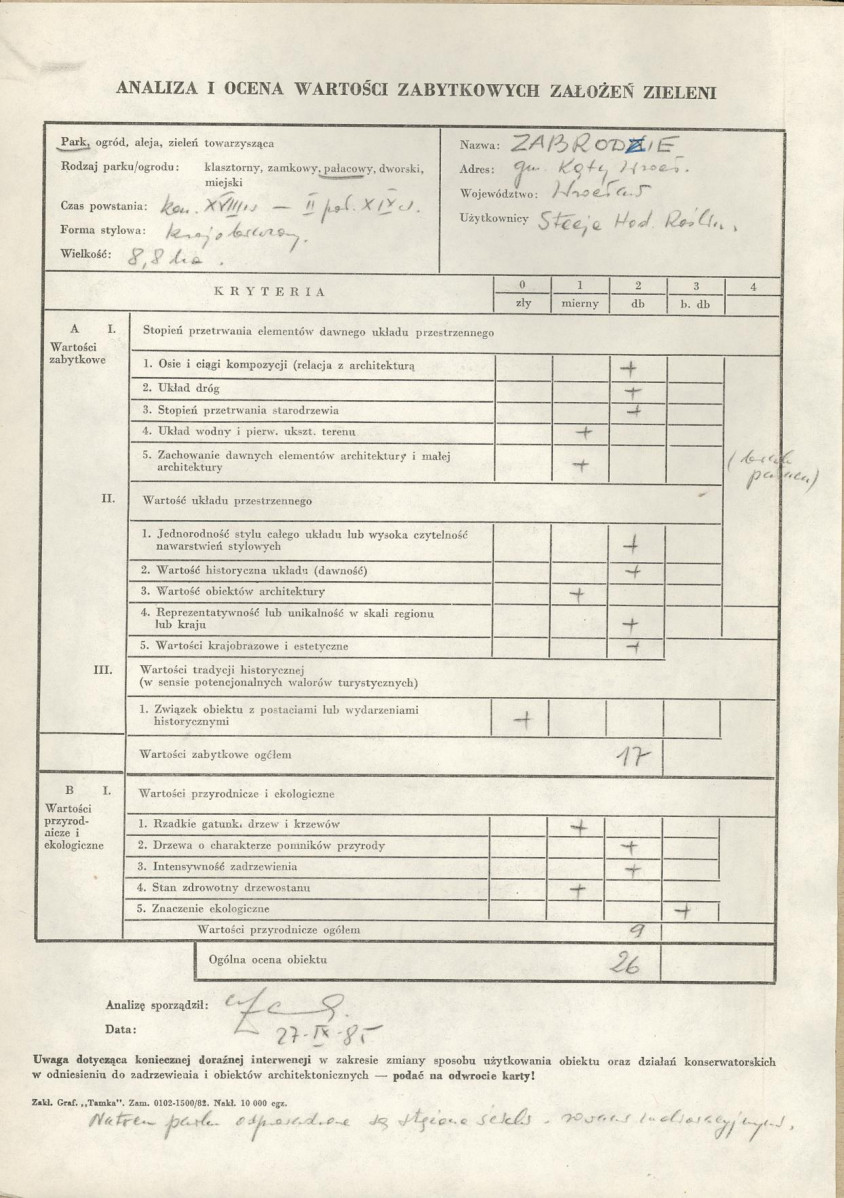 ANALIZA I OCENA WARTOŚCI ZABYTKOWYCH ZAŁOŻEŃ ZIELENI
Park, ogród, aleja, zieleń towarzysząca
Rodzaj parku/ogrodu: klasztorny, zamkowy, pałacowy, dworski,
miejski
Czas powstania: kon. XVIII w – II poł. XIX w.
Forma stylowa: krajobrazowy.
Wielkość: 8,8 ha.
Nazwa: ZABRODZIE
Adres: gm. Kąty Wrocł.
Województwo: Wrocław
Użytkownicy Stacja Hod. Roślin.
KRYTERIA 0 1 2 3 4
zły mierny db b. db
A I. Stopień przetrwania elementów dawnego układu przestrzennego
Wartości
zabytkowe
1. Osie i ciągi kompozycji (relacja z architekturą +
2. Układ dróg +
3. Stopień przetrwania starodrzewia +
4. Układ wodny i pierw. ukszt. terenu +
5. Zachowanie dawnych elementów architektury i małej
architektury +
(brak
pałacu)
II. Wartość układu przestrzennego
1. Jednorodność stylu całego układu lub wysoka czytelność
nawarstwień stylowych +
2. Wartość historyczna układu (dawność) +
3. Wartość obiektów architektury +
4. Reprezentatywność lub unikalność w skali regionu
lub kraju +
5. Wartości krajobrazowe i estetyczne +
III. Wartości tradycji historycznej
(w sensie potencjonalnych walorów turystycznych)
1. Związek obiektu z postaciami lub wydarzeniami
historycznymi +
Wartości zabytkowe ogółem 17
B I. Wartości przyrodnicze i ekologiczne
Wartości
przyrod-
nicze i
ekologiczne
1. Rzadkie gatunki drzew i krzewów +
2. Drzewa o charakterze pomników przyrody +
3. Intensywność zadrzewienia +
4. Stan zdrowotny drzewostanu +
5. Znaczenie ekologiczne +
Wartości przyrodnicze ogółem 9
Ogólna ocena obiektu 26
Analizę sporządził:
Data: 27-IX-85
Uwaga dotycząca koniecznej doraźnej interwencji w zakresie zmiany sposobu użytkowania obiektu oraz działań konserwatorskich
w odniesieniu do zadrzewienia i obiektów architektonicznych — podać na odwrocie karty!
Zakł. Graf. „Tamka". Zam. 0102-1500/82. Nakł. 10 000 egz.
parku odprowadzane są